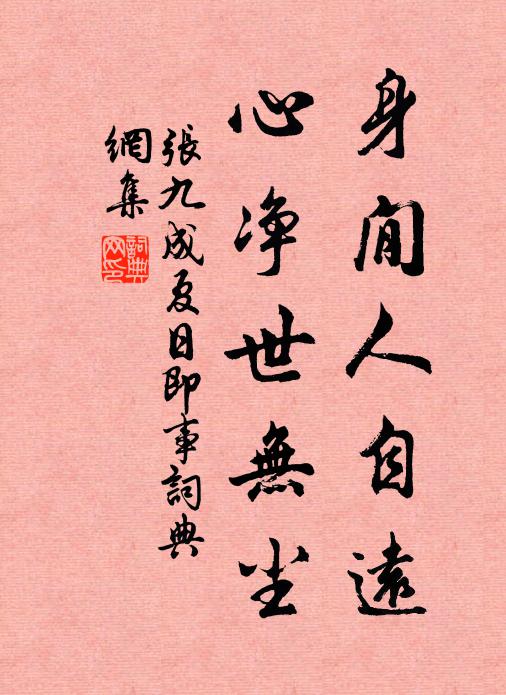 身閒人自遠
心净世無尘
張九成夏日即事詞典
網集
詞典
网印